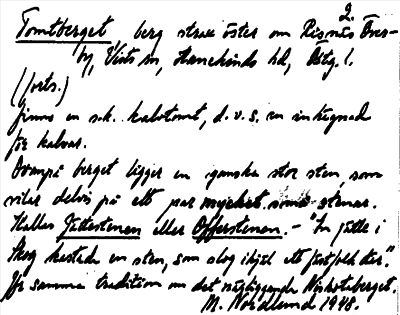 2.
Tomtberget, berg strax öster om Risnäs Över-
by, Vists sn, Hanekinds hd, Östg. l.
(forts.)
finns en s.k. kalvtomt, d.v.s. en inhägnad
för kalvar.
Ovanpå berget ligger en ganska stor sten, som
vilar delvis på ett par mycket små stenar.
Kallas Jättestenen eller Offerstenen. - "En jätte i
skog kastade en sten, som slog ihjäl ett fästfolk där."
Jfr samma tradition om det närliggande
M. Nordlund 1948.